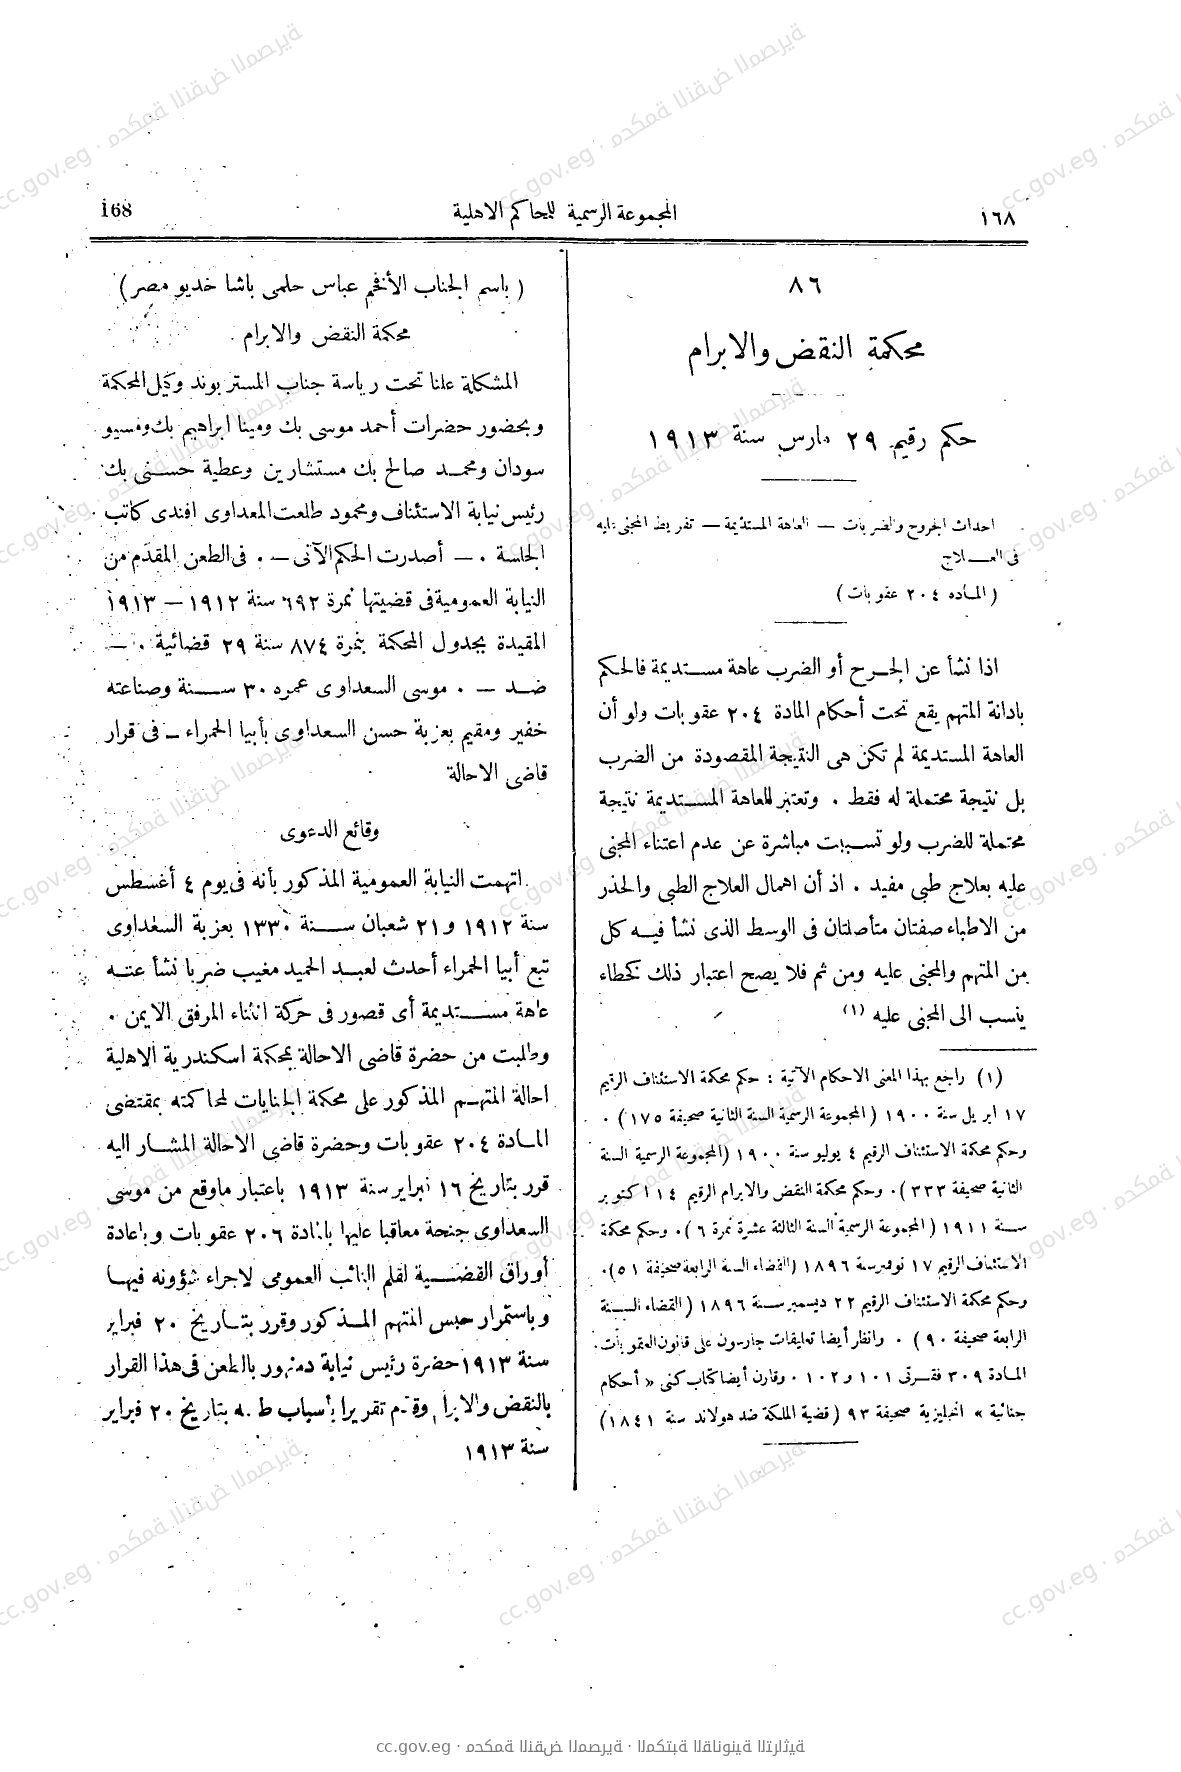 168
المجموعة الرسمية للمحاكم الاهلية
١٦٨
٨٦
محكمة النقض والابرام
حكم رقيم ٢٩ مارس سنة ١٩١٣
احداث الجروح والضربات — العاهة المستديمة — تفريط المجنى عليه
فى العـــلاج
(المـاده ٢٠٤ عقوبات)
اذا نشأ عن الجـرح أو الضرب عاهة مستديمة فالحكم
بادانة المتهم يقع تحت أحكام المادة ٢٠٤ عقوبات ولو أن
العاهة المستديمة لم تكن هى النتيجة المقصودة من الضرب
بل نتيجة محتملة له فقط . وتعتبر العاهة المستديمة نتيجة
محتملة للضرب ولو تسببت مباشرة عن عدم اعتناء المجنى
عليه بعلاج طبى مفيد . اذ أن اهمال العلاج الطبى والحذر
من الاطباء صفتان متأصلتان فى الوسط الذى نشأ فيه كل
من المتهم والمجنى عليه ومن ثم فلا يصح اعتبار ذلك كخطاء
ينسب الى المجنى عليه (١)
(١) راجع بهذا المعنى الاحكام الآتية : حكم محكمة الاستئناف الرقيم
١٧ ابريل سنة ١٩٠٠ (المجموعة الرسمية السنة الثانية صحيفة ١٧٥) .
وحكم محكمة الاستئناف الرقيم ٤ يوليو سنة ١٩٠٠ (المجموعة الرسمية السنة
الثانية صحيفة ٣٣٣) . وحكم محكمة النقض والابرام الرقيم ١٤ اكتوبر
سنة ١٩١١ (المجموعة الرسمية السنة الثالثة عشرة نمرة ٦) . وحكم محكمة
الاستئناف الرقيم ١٧ نوفمبر سنة ١٨٩٦ (القضاء السنة الرابعة صحيفة ٥١) .
وحكم محكمة الاستئناف الرقيم ٢٢ ديسمبر سنة ١٨٩٦ (القضاء السنة
الرابعة صحيفة ٩٠) . وانظر أيضا تعليقات جارسون على قانون العقوبات .
المـادة ٣٠٩ فقـرتى ١٠١ و ١٠٢ . وقارن أيضا كتاب كنى « أحكام
جنائية » انجليزية صحيفة ٩٣ (قضية الملكة ضد هولاند سنة ١٨٤١)
(باسم الجناب الأفخم عباس حلمى باشا خديو مصر)
محكمة النقض والابرام
المشكلة علنا تحت رياسة جناب المستر بوند وكيل المحكمة
وبحضور حضرات أحمد موسى بك ومينا ابراهيم بك ومسيو
سودان ومحمـد صالح بك مستشارين وعطية حسـنى بك
رئيس نيابة الاستئناف ومحمود طلعت المعداوى افندى كاتب
الجلسة . — أصدرت الحكم الآتى — . فى الطعن المقدّم من
النيابة العمومية فى قضيتها نمرة ٦٩٢ سنة ١٩١٢ — ١٩١٣
المقيدة بجدول المحكمة بنمرة ٨٧٤ سنة ٢٩ قضائية . —
ضـد — . موسى السعداوى عمره ٣٠ سـنة وصناعته
خفير ومقيم بعزبة حسن السعداوى بأبيا الحمراء — فى قرار
قاضى الاحالة
وقائع الدعوى
اتهمت النيابة العمومية المذكور بأنه فى يوم ٤ أغسطس
سنة ١٩١٢ و ٢١ شعبان سـنة ١٣٣٠ بعزبة السعداوى
تبع أبيا الحمراء أحدث لعبـد الحميد مغيب ضربا نشأ عنـه
عاهة مستديمة أى قصور فى حركة انثناء المرفق الايمن .
وطلبت من حضرة قاضى الاحالة بمحكمة اسكندرية الاهلية
احالة المتهـم المذكور على محكمة الجنايات لمحاكمته بمقتضى
المـادة ٢٠٤ عقوبات وحضرة قاضى الاحالة المشـار اليه
قرر بتاريخ ١٦ فبراير سنة ١٩١٣ باعتبار ماوقع من موسى
السعداوى جنحة معاقبا عليها بالمادة ٢٠٦ عقوبات وباعادة
أوراق القضـية لقلم النائب العمومى لاجراء شؤونه فيهـا
وباستمرار حبس المتهم المـذكور وقرر بتـاريخ ٢٠ فبراير
سنة ١٩١٣ حضرة رئيس نيابة دمنهور بالطعن فى هذا القرار
بالنقض والابرام وقدّم تقريرا بأسباب طعنه بتاريخ ٢٠ فبراير
سنة ١٩١٣
cc.gov.eg · محكمة النقض المصرية · المكتبة القانونية التراثية